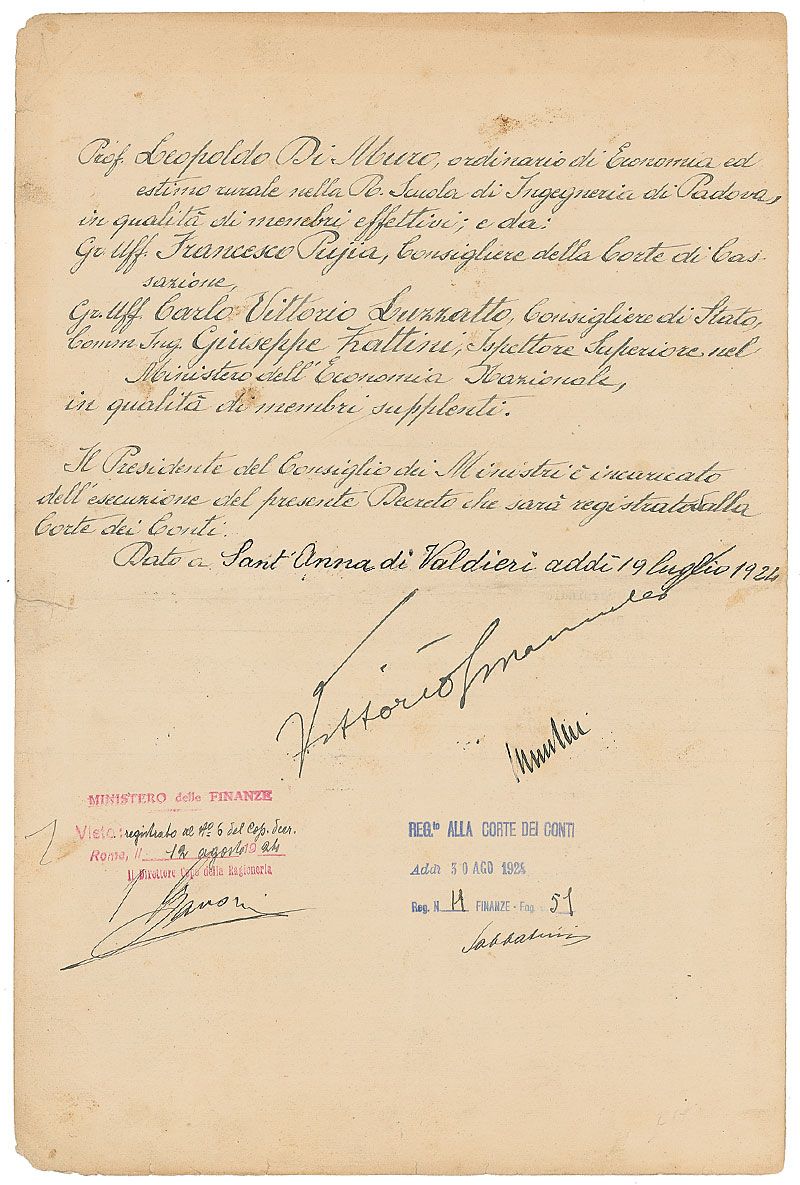 Prof. Leopoldo Di Muro, ordinario di Economia ed
estimo rurale nella R. Scuola di Ingegneria di Padova,
in qualità di membri effettivi; e da:
Gr. Uff. Francesco Pujia, Consigliere della Corte di Cas-
sazione,
Gr. Uff. Carlo Vittorio Luzzatto, Consigliere di Stato,
Comm. Ing. Giuseppe Zattini, Ispettore Superiore nel
Ministero dell'Economia Nazionale,
in qualità di membri supplenti.
Il Presidente del Consiglio dei Ministri è incaricato
dell'esecuzione del presente Decreto che sarà registrato alla
Corte dei Conti.
Dato a Sant'Anna di Valdieri addì 19 luglio 1924
Vittorio Emanuele
MINISTERO delle FINANZE
Visto: registrato al Nº 6 del Cap. decr.
Roma, li 12 agosto 1924
Il Direttore Capo della Ragioneria
REG.to ALLA CORTE DEI CONTI
Addì 30 AGO 1924
Reg. N. 11 FINANZE - Fog. 51
Sabbatini